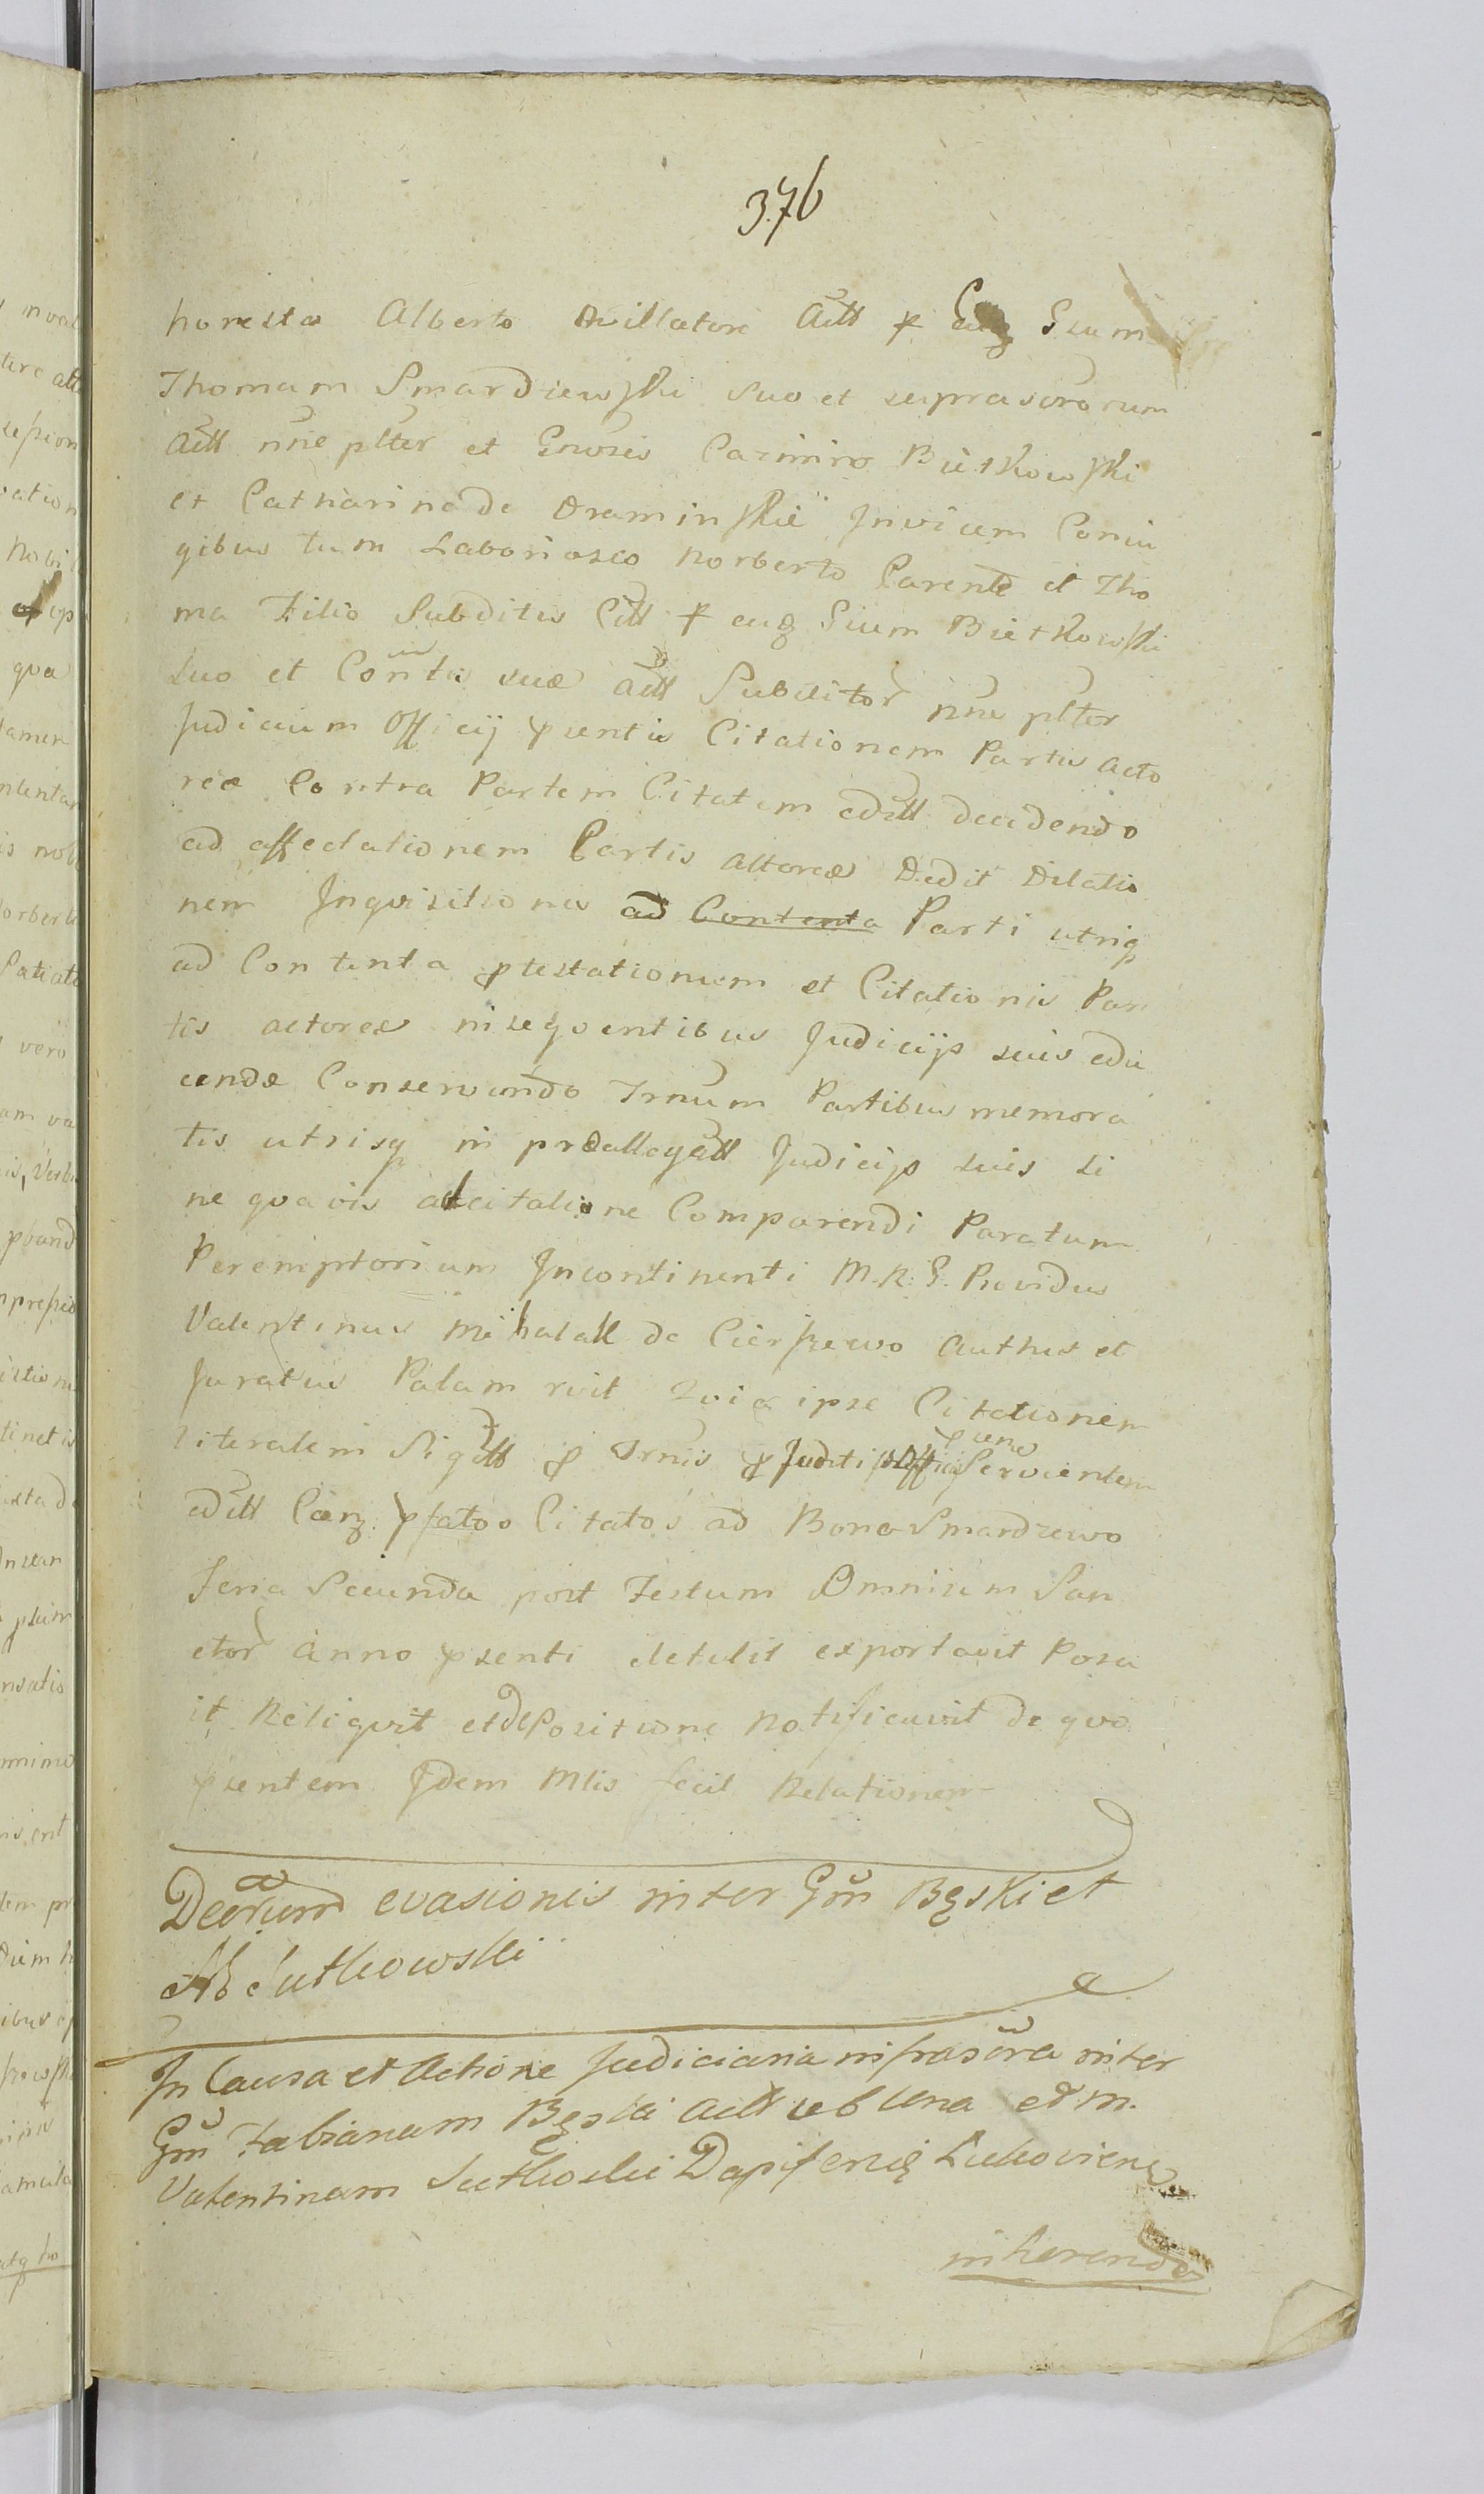 376
honesto Alberto Avillatore Actt p eug Gium
Thomam Smardzewski suo et suprascrorum
Actt nne plter et Gnosis Casimiro Bietkowski
et Catharina de Draminskie Invicem Coniu
gibus tum Laborioso Norberto Parente et Tho
ma Filio Subditis Citt p eug Gium Bietkowski
Suo et Contis suæ actt Subditor nne plter
Judicium Officij psentis Citationem Partis acto
reæ Contra Partem Citatam edtt decidendo
ad affectationem Partis Actoreæ Dedit Dilatio
nem Inquisitionis ad Contenta Parti utriq
ad Contenta ptestationum et Citationis Par
tis actoreæ insequentibus Judicijs suis edu
cendæ Conservando Trnum Partibus memora
tis utrisq in præallegatt Judicijs suis si
ne quavis adcitatione Comparendi Paratum
Peremptorium Incontinenti M.R.G. Providus
Valentinus Michalak de Cierszewo Authus et
Juratus Palam rvit Quia ipse Citationem
literalem Sigtt p Trnis p Juditi Offij Servientem
edtt Carz pfatos Citatos ad Bona Smardzewo
Feria Secunda post Festum Omnium San
ctor Anno psenti detulit exportavit Posu
it Reliquit et de Positione Notificavit de quo
psentem Idem Mlis fecit Relationem
Decrum evasionis inter Gm Bęski et
M Sutkowski
In Causa et Actione Judiciaria infrascra inter
Gm Fabianum Bęski Actt ab Una et M.
Valentinum Sutkoski Dapiferig Lukoviens
inherendo